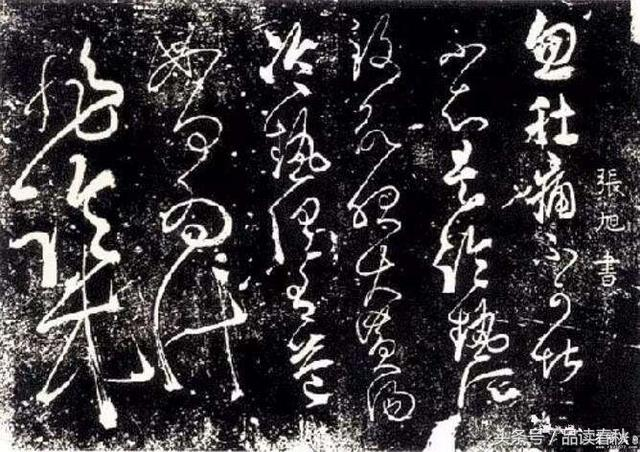 張旭書
忽肚痛不可堪
不知是冷熱所
致欲服大黃湯
冷熱俱有益
如何為計
非臨床
头条号 / 品读春秋